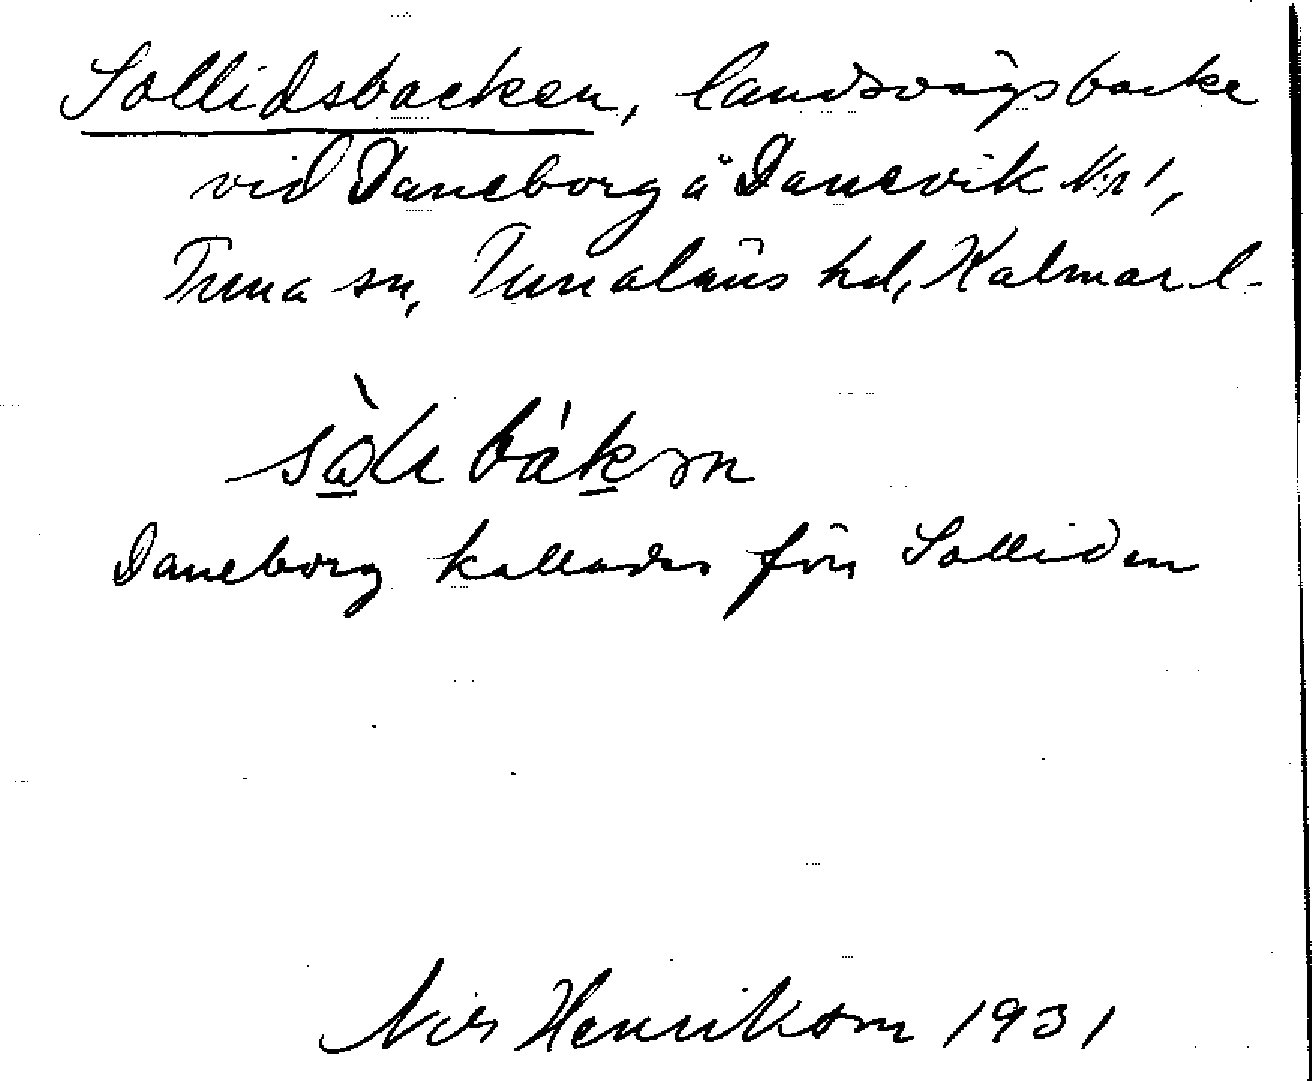 Sollidsbacken, landsvägsbacke
vid Daneborg å Danevik Nr 1,
Tuna sn, Tunaläns hd, Kalmar l.
Daneborg kallades förr Solliden
Nils Henriksson 1931